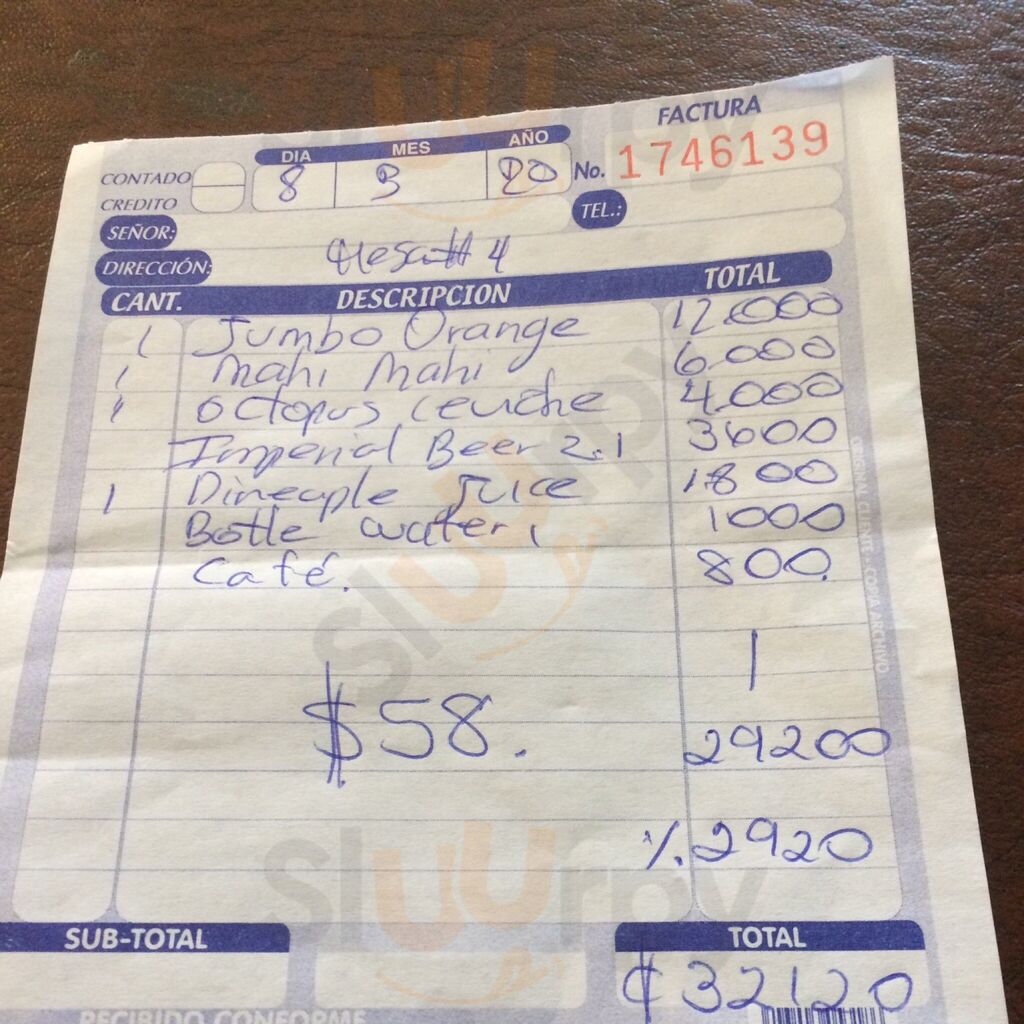 FACTURA
DIA MES AÑO
CONTADO 8 3 20 No. 1746139
CREDITO
SEÑOR: TEL.:
DIRECCIÓN: Mesa # 4
CANT. DESCRIPCION TOTAL
1 Jumbo Orange 12.000
1 Mahi Mahi 6.000
1 Octopus Ceviche 4.000
Imperial Beer 2.1 3600
1 Dineaple Juice 1800
Bottle water 1 1000
Café. 800
$58. 29200
%. 2920
SUB-TOTAL TOTAL
₡32120
RECIBIDO CONFORME
ORIGINAL CLIENTE - COPIA ARCHIVO
Sluurpy
Sluurpy